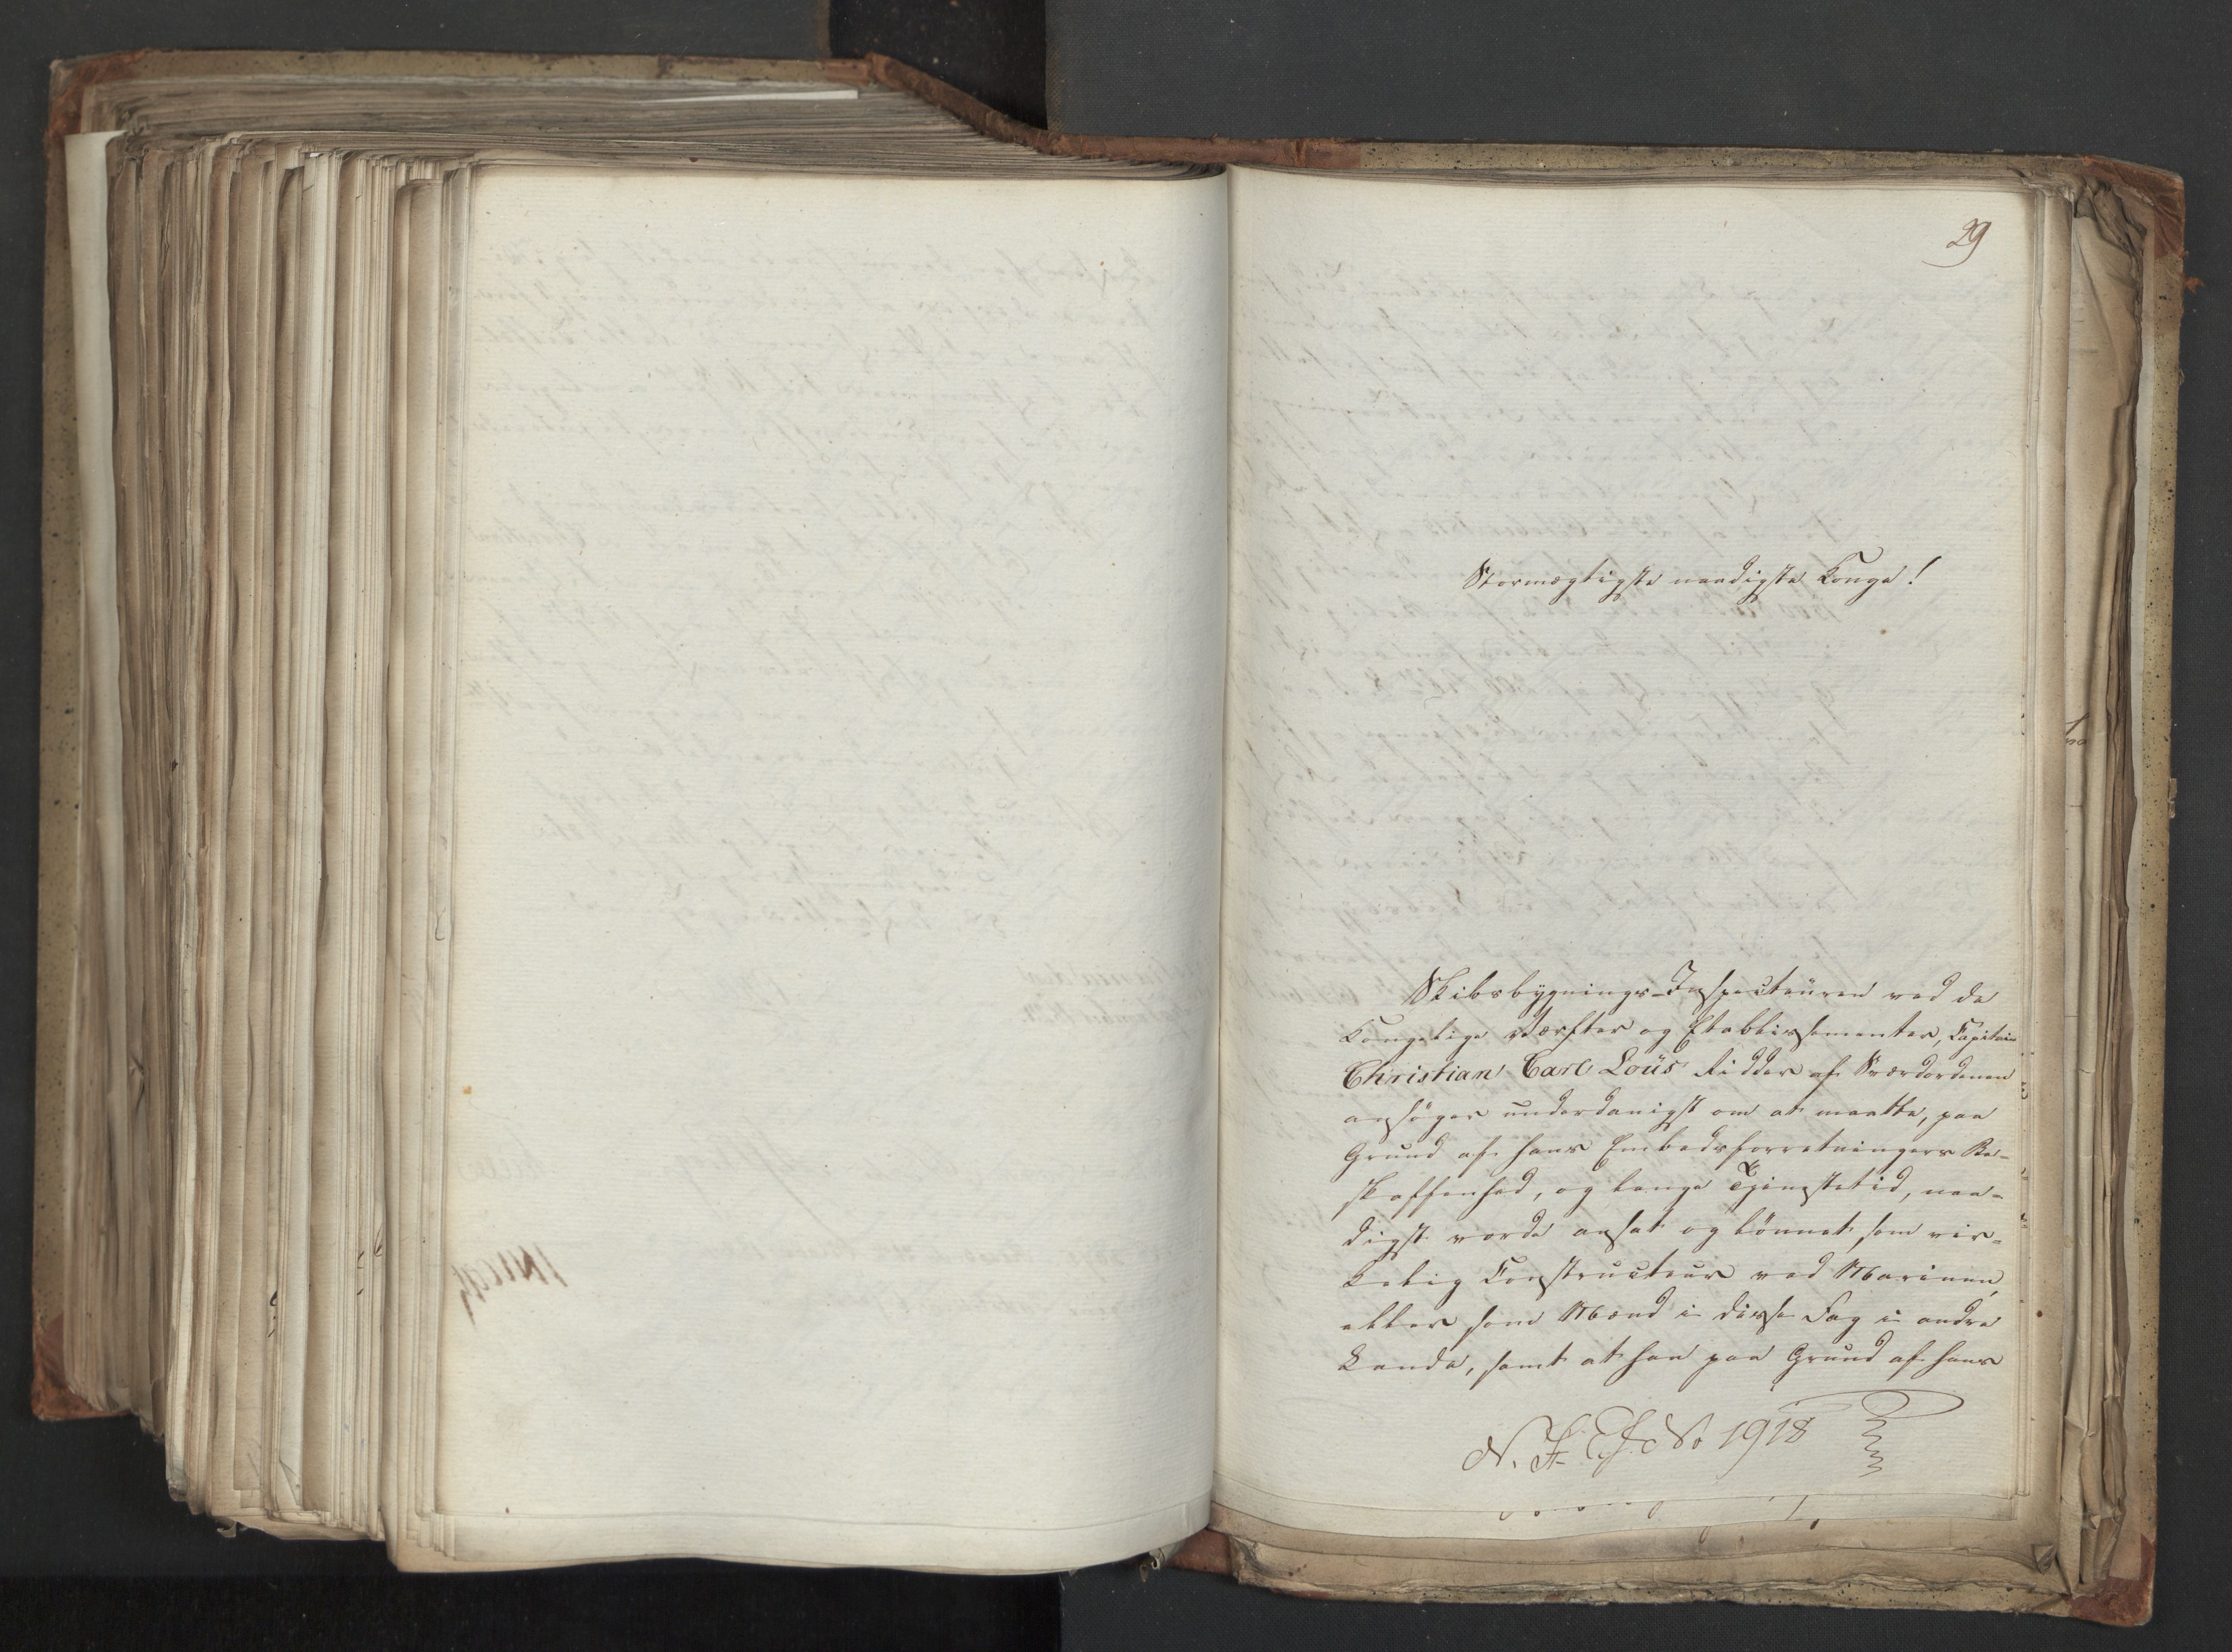 29
Stormægtigste naadigste Konge!
Skibsbygnings-Inspecteüren ved de
Kongelige Værfter og Etablissementer, Capitain
Christian Carl Loüs Ridder af Sværdordenen
ansöger underdanigst om at maatte, paa
Grund af hans Embedsforretningers Be-
skaffenhed, og lange Tjenestetid, naa-
digst vorde ansat og lönnet som vir-
kelig Constructeur ved Marinen,
eller som Mænd i disse Fag i andre
Lande, samt at han paa Grund af hans
No 1918